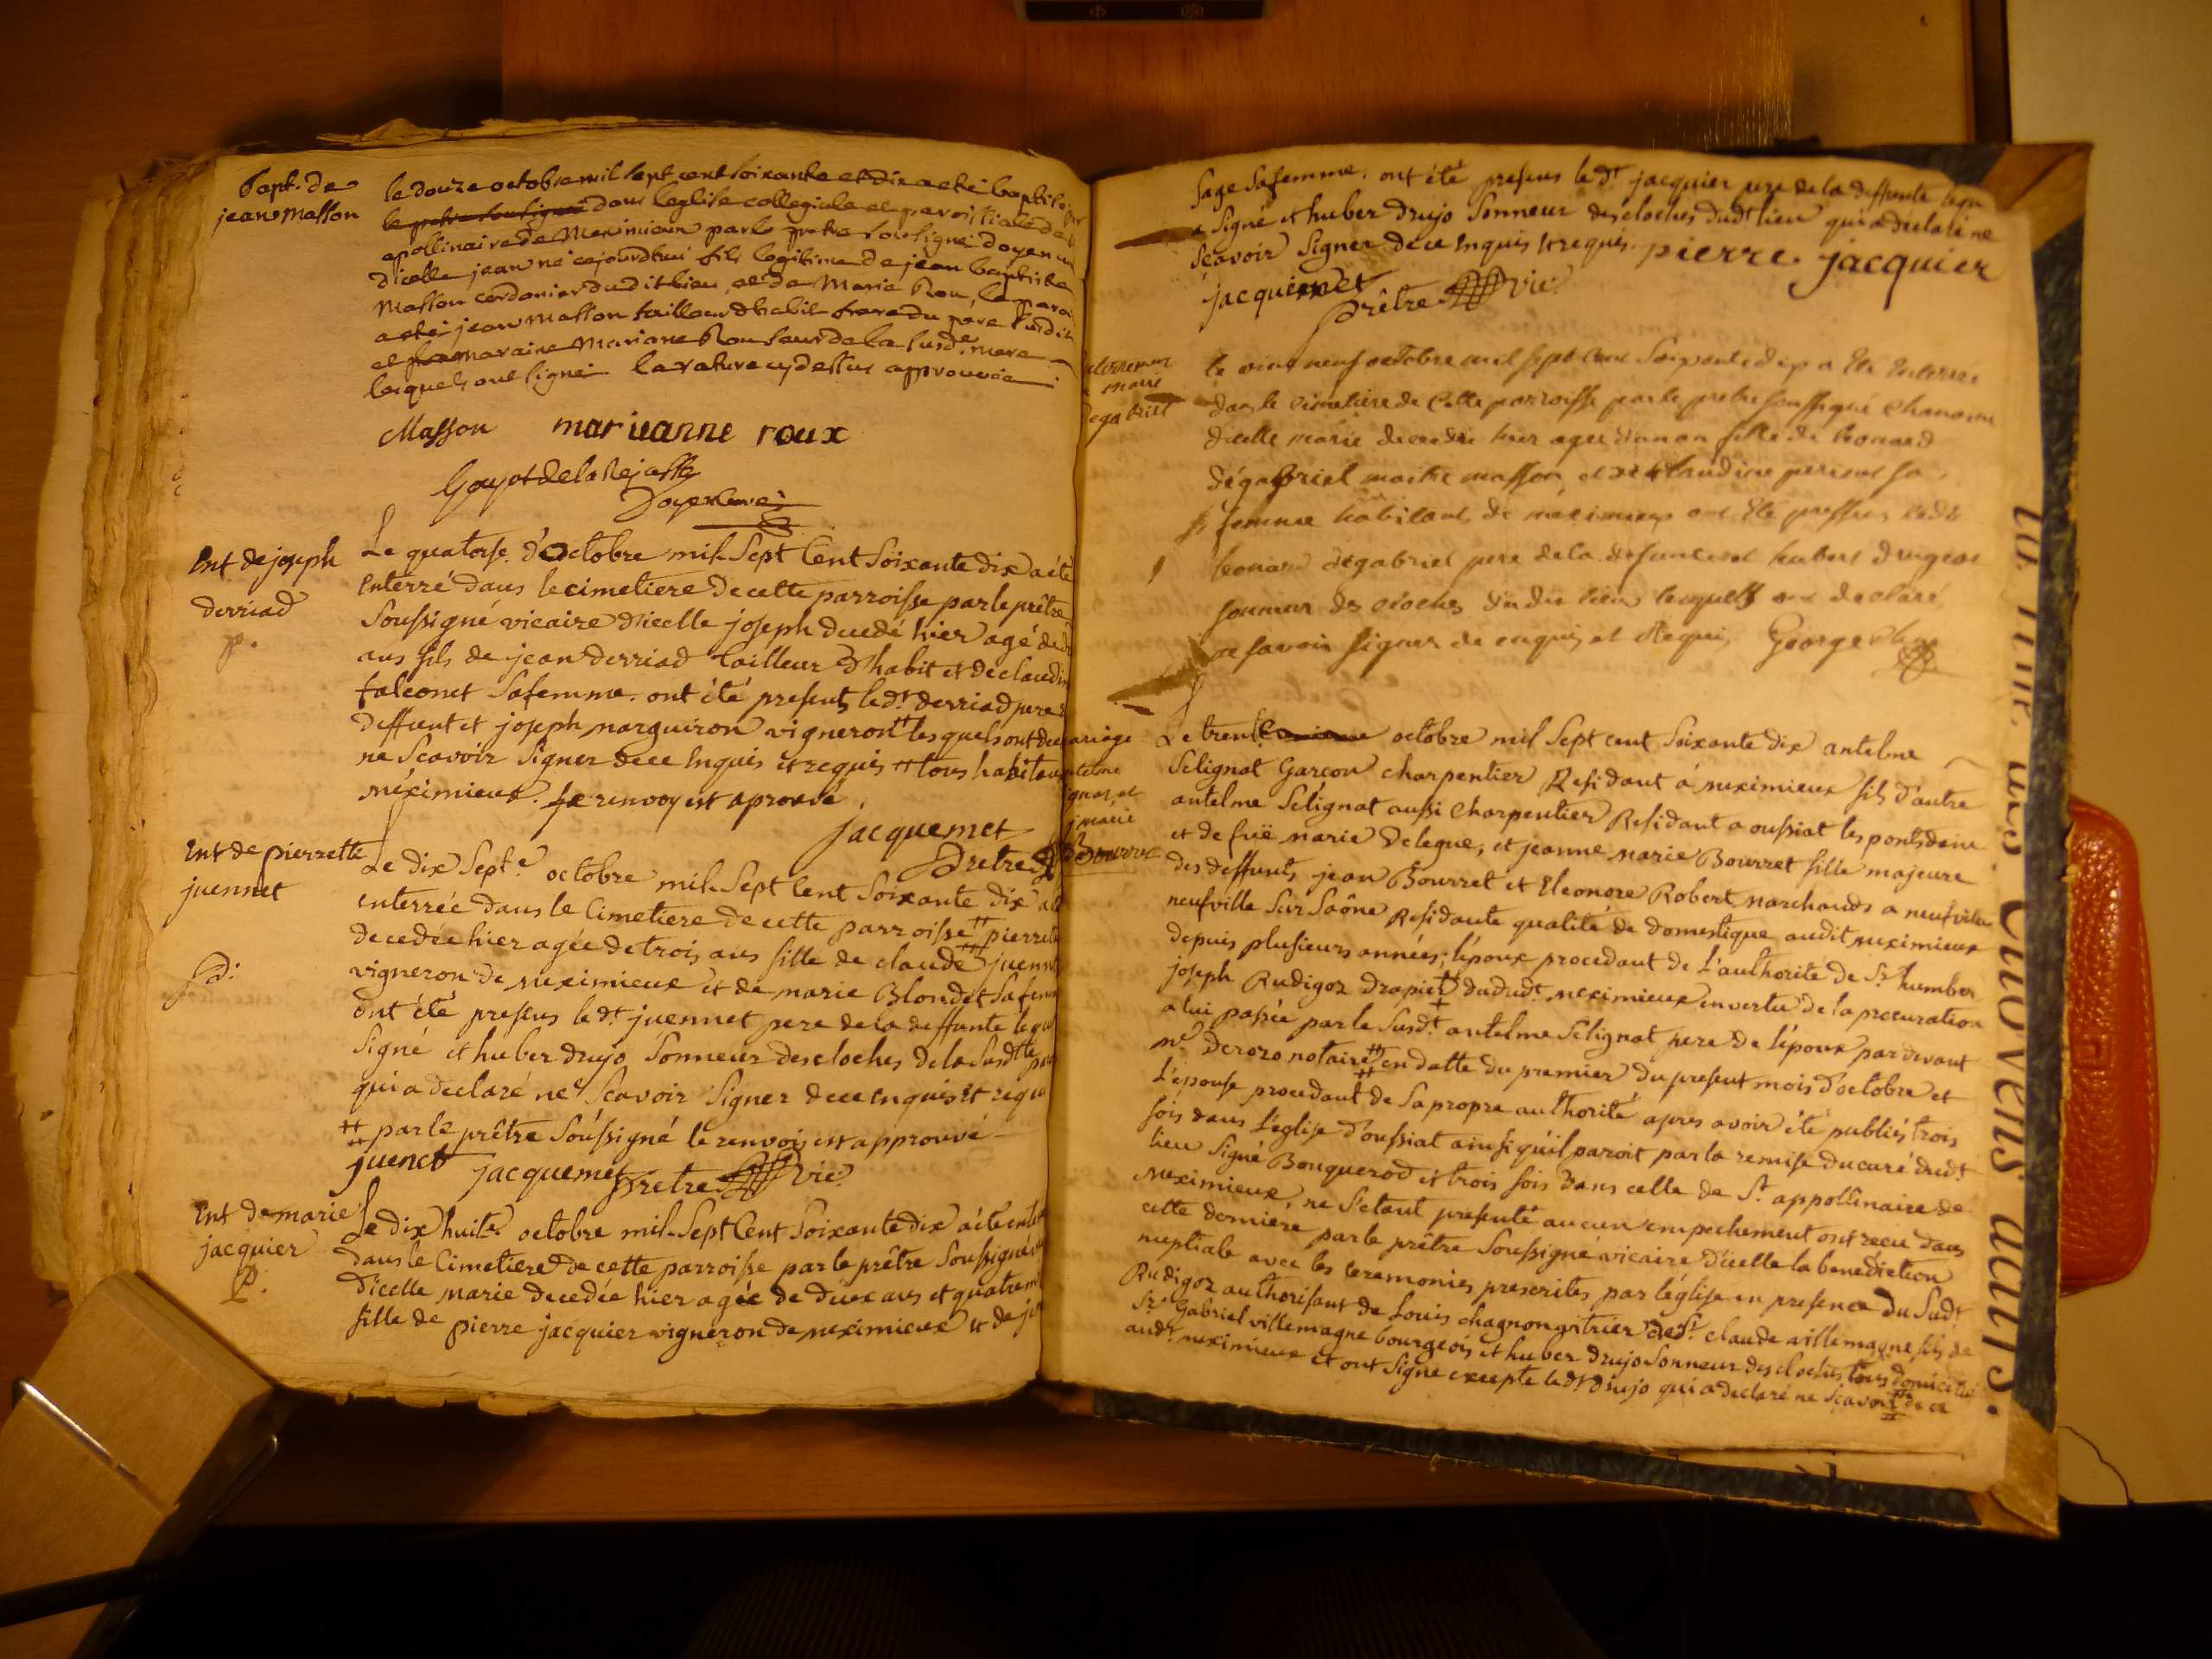 Bapt. de
jean Masson
le douze octobre mil sept cent soixante et dix a eté baptisé
le pretre soussigné dans l'eglise collegiale et paroissiale de
apollinaire de Meximieux par le pretre soussigné doyen
d'icelle jean né cejourdhui fils legitime de jean baptiste
Masson cordonier dudit lieu, et de Marie Rou, le
a eté jean Masson tailleur d'habit frere du pere susdit
et la maraine Mariane Rou sœur de la susde. mere
lesquels ont signé. la rature cy dessus approuvée
Masson marieanne roux
Goyot de la
Doyen
Ent de joseph
derriad
p.
Le quatorse. d'octobre mil Sept Cent Soixante dix a été
Enterré dans le cimetiere de cette parroisse par le prêtre
Soussigné vicaire d'icelle joseph decedé hier agé de
ans fils de jean derriad tailleur d'habit et de claudin
falconet Sa femme. ont été presents le dt. derriad pere
deffunt et joseph narguiron vigneron # lesquels ont
ne Scavoir Signer de ce Enquis et requis # tous
méximieux. Le renvoy est aprouvé.
jacquemet
Prêtre
Ent de pierrette
juennet
Le dix Septe. octobre mil Sept Cent Soixante dix a
enterrée dans le Cimetiere de cette parroisse # pierrett
decedée hier agée de trois ans fille de claude juenn
vigneron de meximieux et de marie Blondet Sa
Ont été presens le dt. juennet pere de la deffunte
Signé et huber drujo Sonneur des cloches de la Susdte
qui a declaré ne Scavoir Signer de ce enquis et
# par le prêtre Soussigné le renvois est approuvé
juenet jacquemet prêtre vic.
Ent de marie
jacquier
p.
Le dix huite. octobre mil Sept Cent Soixante dix a été
dans le Cimetiere de cette parroisse par le prêtre Soussigné
d'icelle marie decedée hier agée de deux ans et quatre
fille de pierre jacquier vigneron de meximieux et de
Sage Sa femme. ont été presens le dt. jacquier pere de la deffunte
a Signé et huber drujo Sonneur des cloches dudt. lieu qui a declaré ne
Scavoir Signer de ce Enquis et requis. pierre jacquier
jacquemet
prêtre vic.
marie
degabriel
le vint neuf octobre mil sept cent soixante dix a Eté Enterrée
dans le cimetiere de Cette parroisse par le pretre soussigné chanoine
d'icelle marie decedée hier agée d'un an fille de leonard
dégabriel maitre masson et de claudine sa
femme habitants de meximieux ont Eté
leonard dégabriel pere de la defunte et hubert drugeot
sonneur des cloches du dit lieu lesquels ont declaré
ne savoir signer de enquis et Requis George
mariage
antelme
j marie
Bourret
Le trente octobre mil Sept cent Soixante dix antelme
Selignat Garcon charpentier Residant a meximieux fils d'autre
antelme Selignat aussi charpentier Residant a oussiat les ponts
et de fuë marie Delegue, et jeanne marie Bourret fille majeure
des deffunts jean Bourret et Eleonore Robert marchands a neufville
neufville Sur Saône Residante qualité de domestique audit meximieux
depuis plusieurs années; l'époux procedant de L'authorité de Sr. humber
joseph Rudigoz drapier dududt. meximieux en vertu de la procuration
a lui passée par le Susdt. antelme Selignat pere de l'époux par devant
me. Derozo notaire # en datte du premier du present mois d'octobre et
L'epouse procedant de Sa propre authorité apres avoir été publiés trois
fois dans L'église d'oussiat ainsi qu'il paroit par la remise du curé dudt.
lieu Signé Bouquerod et trois fois dans celle de St. appollinaire de
meximieux, ne S'etant presenté aucun empechement ont recu dans
cette derniere par le prêtre Soussigné vicaire d'icelle la benediction
nuptiale avec les ceremonies prescrites par l'église en presence du Sudt.
Rudigoz authorisant de Louis chagnon vitrier de Sr. claude villemagne fils de
Sr. Gabriel villemagne bourgeois et huber drujo Sonneur des cloches tous domiciliés
audt. meximieux et ont Signé excepte le dt drujo qui a declaré ne Scavoir # de ce